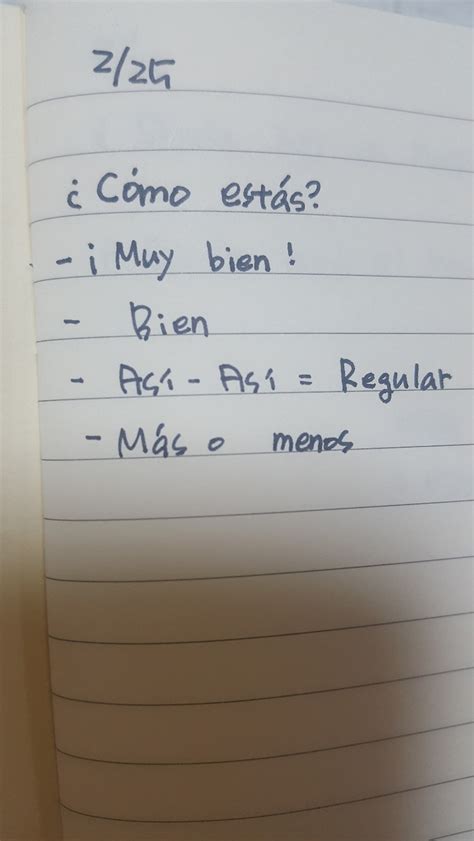 2/25
¿Cómo estás?
- ¡Muy bien!
- Bien
- Así - Así = Regular
- Más o menos